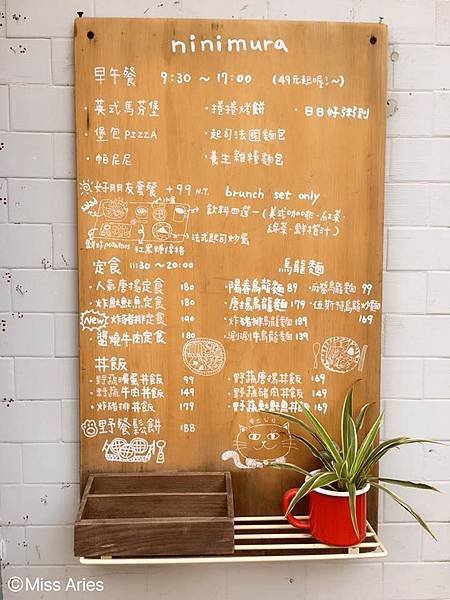 ninimura
早午餐 9:30～17:00 (49元起喔!～)
·英式馬芬堡 ·捲捲烤餅 ·日日好粥到
·堡包PIZZA ·起司法國麵包
·帕尼尼 ·養生雜糧麵包
好朋友套餐 +99 N.T. brunch set only
飲料四選一(美式咖啡·紅茶·
綠茶·鮮橙汁)
法式起司炒蛋
定食 11:30～20:00 烏龍麵
·人氣唐揚定食 180 ·陽春烏龍麵 89
·炸魷魷魚定食 180 ·唐揚烏龍麵 179 ·伍斯特烏龍炒麵
New ·炸豬排定食 190 ·炸豬排烏龍麵 189 169
·醬燒牛肉定食 180 ·涮涮牛烏龍麵 139
丼飯
·野蔬嫩蛋丼飯 99 ·野蔬唐揚丼飯 169
·野蔬牛肉丼飯 149 ·野蔬豬肉丼飯 149
·炸豬排丼飯 179 ·野蔬魷魷魚丼飯 169
野餐鬆餅 188
©Miss Aries